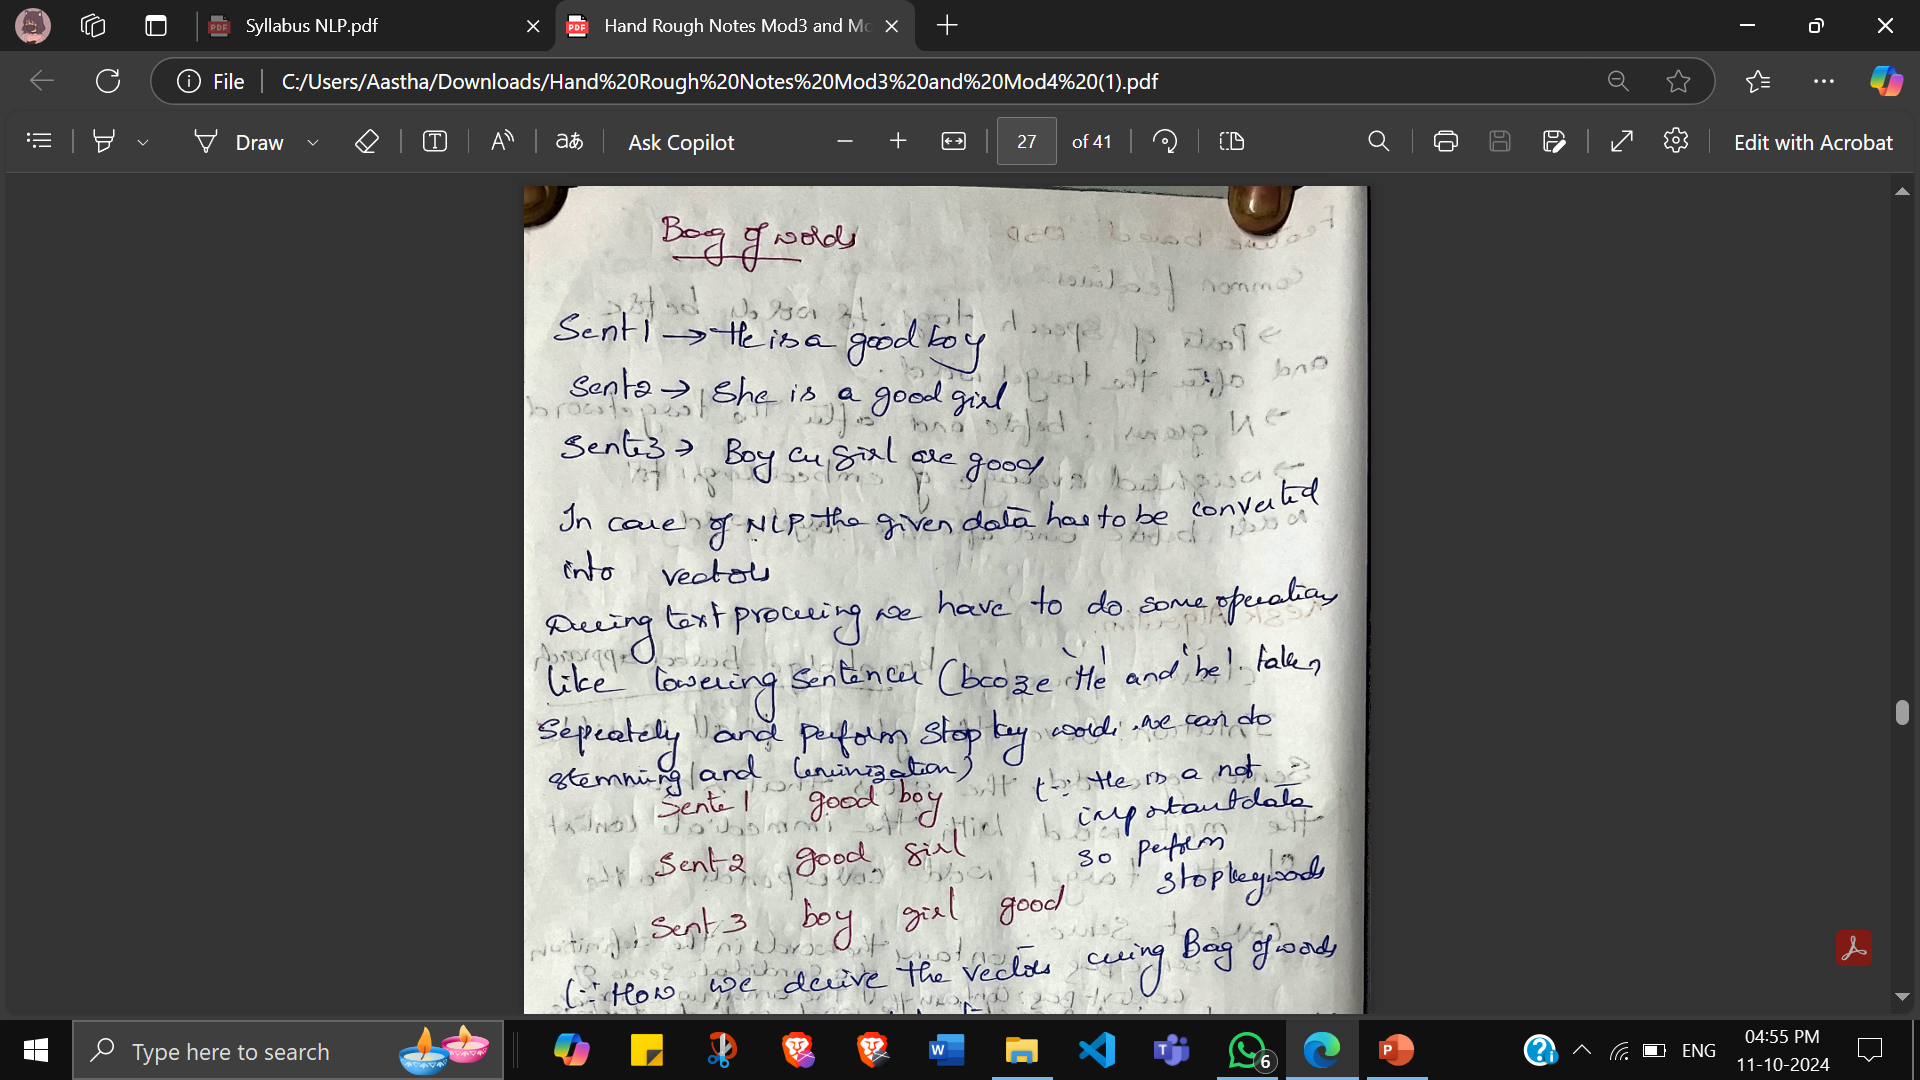 Syllabus NLP.pdf
Hand Rough Notes Mod3 and Mo
File
C:/Users/Aastha/Downloads/Hand%20Rough%20Notes%20Mod3%20and%20Mod4%20(1).pdf
Draw
Ask Copilot
27 of 41
Edit with Acrobat
Bag of words
Sent1 → He is a good boy
Sent2 → She is a good girl
Sent3 → Boy girl are good
In case of NLP the given data has to be converted
into vectors
During text processing we have to do some operations
like lowering sentences ( 'He' and 'he' taken
seperately and perform stop key words we can do
stemming and
Sente 1 good boy
(∵ He is a not
important data
so perform
stop keywords
Sent 2 good girl
Sent 3 boy girl good
(∵ How we derive the vectors using Bag of words
Type here to search
6
ENG
04:55 PM
11-10-2024